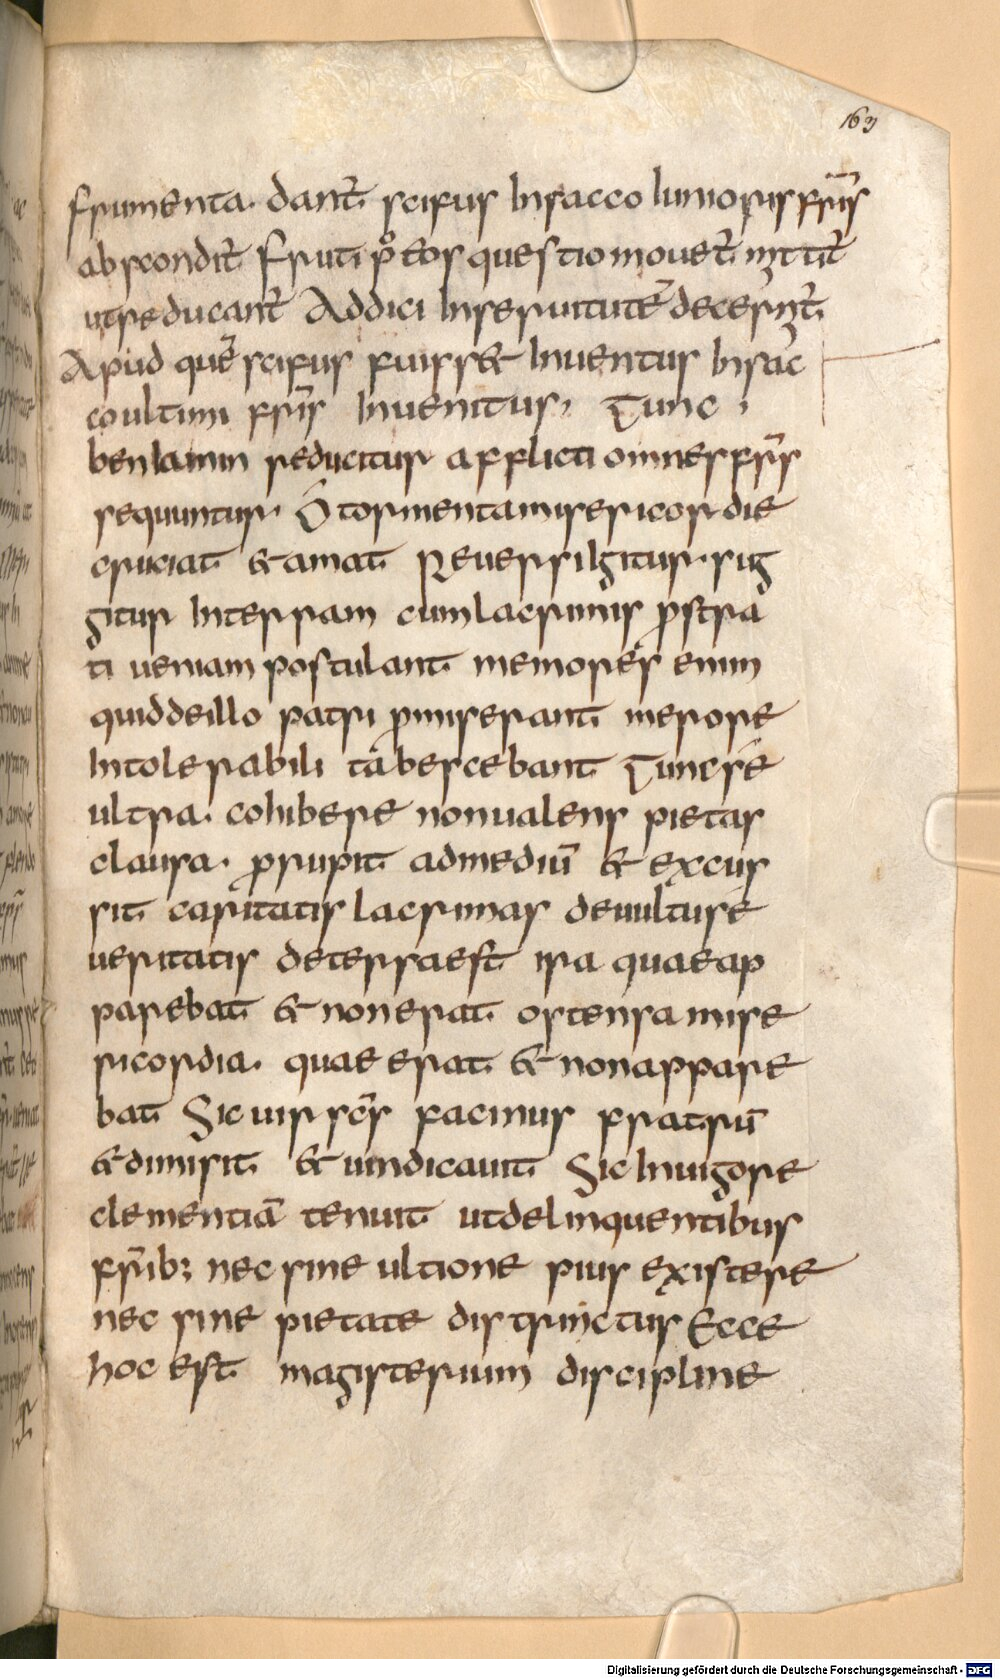 163
frumenta. dant̄ scifus Insacco Iunioris fr̄is
abscondit̄ Furti p̊ eos questio mouet̄ mittit̄
utreducant̄ Addici Inseruitutē decern̄t̄
Apud quē scifus fuisset Inuentus Insac
co ultimi fr̄is Inuenitus, Tunc ,
beniamin reducitur afflicti omnes fr̄s
sequuntur. O tormenta misericordie
cruciat & amat Reuersi Igitur. rig
gitur Interram cum lacrimis p̄stra
ti ueniam postulant memores enim
quiddeillo patri p̄miserant merore
Intolerabili tabescebant Tunc se
ultra. cohibere nonualens pietas
clausa. prrupit admediū & excus
sit caritatis lacrimas deuultu se
ueritatis detersa est ira quae ap
parebat & non erat ostensa mise
ricordia. quae erat & non appare
bat Sic uir sc̄s facinus fratrū
& dimisit & uindicauit Sic Inuigore
clementiā tenuit utdelinquentibus
fr̄ib; nec sine ultione pius existere
nec sine pietate districtus Ecce
hoc est magisterium discipline
Digitalisierung gefördert durch die Deutsche Forschungsgemeinschaft - DFG